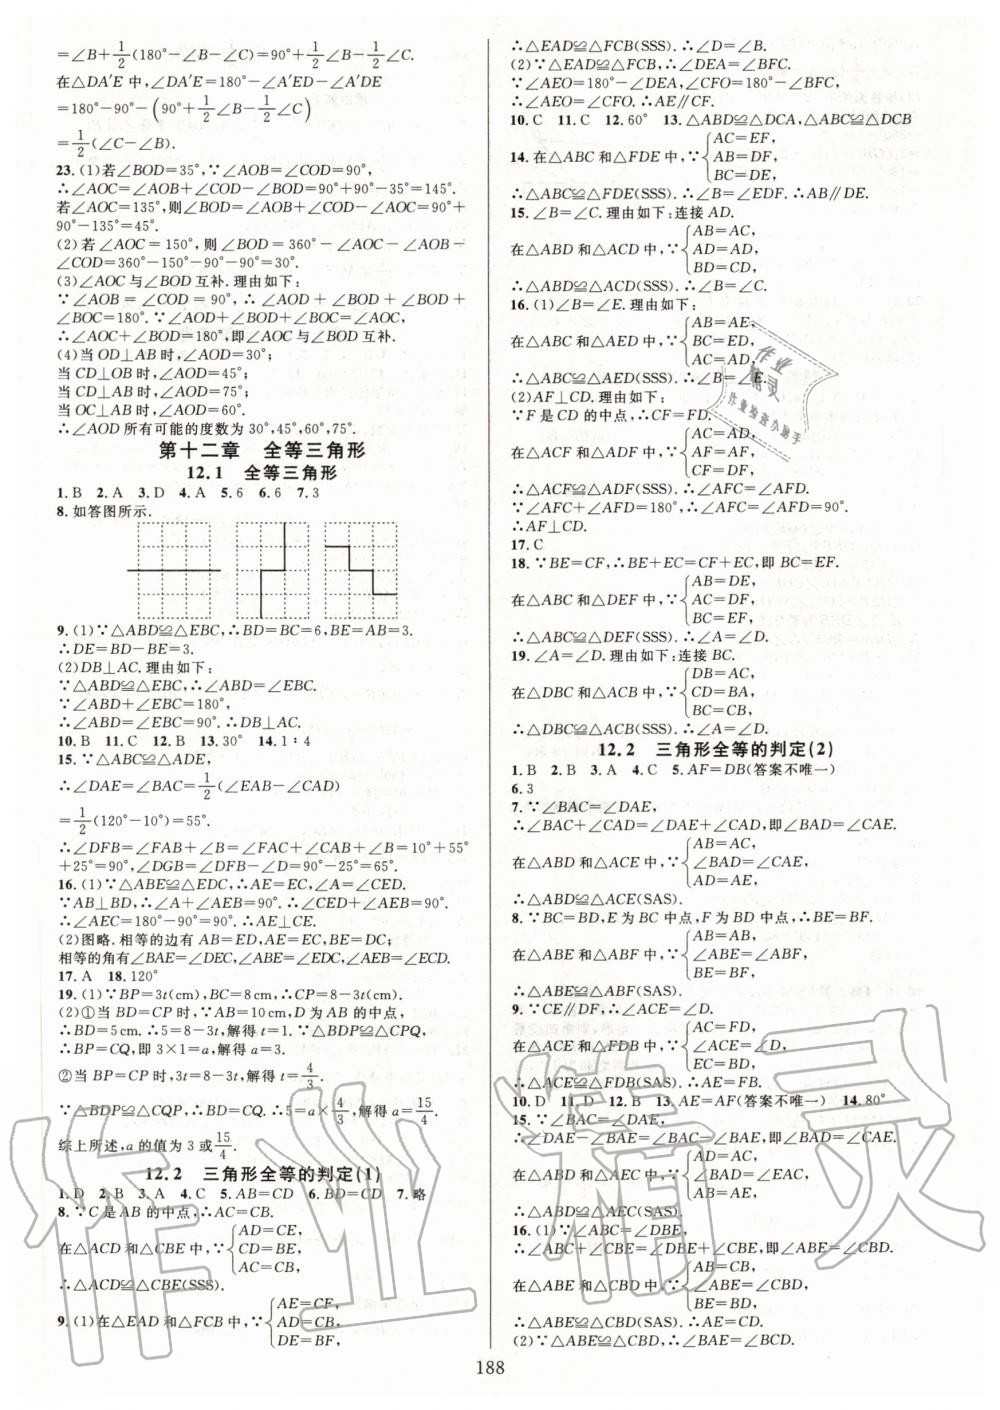 =∠B+1/2(180°-∠B-∠C)=90°+1/2∠B-1/2∠C.
在△DA′E 中,∠DA′E=180°-∠A′ED-∠A′DE
=180°-90°-(90°+1/2∠B-1/2∠C)
=1/2(∠C-∠B).
23.(1)若∠BOD=35°,∵∠AOB=∠COD=90°,
∴∠AOC=∠AOB+∠COD-∠BOD=90°+90°-35°=145°.
若∠AOC=135°,则∠BOD=∠AOB+∠COD-∠AOC=90°+
90°-135°=45°.
(2)若∠AOC=150°,则∠BOD=360°-∠AOC-∠AOB-
∠COD=360°-150°-90°-90°=30°.
(3)∠AOC 与∠BOD 互补.理由如下:
∵∠AOB=∠COD=90°,∴∠AOD+∠BOD+∠BOD+
∠BOC=180°.∵∠AOD+∠BOD+∠BOC=∠AOC,
∴∠AOC+∠BOD=180°,即∠AOC 与∠BOD 互补.
(4)当 OD⊥AB 时,∠AOD=30°;
当 CD⊥OB 时,∠AOD=45°;
当 CD⊥AB 时,∠AOD=75°;
当 OC⊥AB 时,∠AOD=60°.
∴∠AOD 所有可能的度数为 30°,45°,60°,75°.
第十二章 全等三角形
12.1 全等三角形
1.B 2.A 3.D 4.A 5.6 6.6 7.3
8.如答图所示.
9.(1)∵△ABD≌△EBC,∴BD=BC=6,BE=AB=3.
∴DE=BD-BE=3.
(2)DB⊥AC.理由如下:
∵△ABD≌△EBC,∴∠ABD=∠EBC.
∵∠ABD+∠EBC=180°,
∴∠ABD=∠EBC=90°.∴DB⊥AC.
10.B 11.C 12.B 13.30° 14.1∶4
15.∵△ABC≌△ADE,
∴∠DAE=∠BAC=1/2(∠EAB-∠CAD)
=1/2(120°-10°)=55°.
∴∠DFB=∠FAB+∠B=∠FAC+∠CAB+∠B=10°+55°
+25°=90°,∠DGB=∠DFB-∠D=90°-25°=65°.
16.(1)∵△ABE≌△EDC,∴AE=EC,∠A=∠CED.
∵AB⊥BD,∴∠A+∠AEB=90°.∴∠CED+∠AEB=90°.
∴∠AEC=180°-90°=90°.∴AE⊥CE.
(2)图略.相等的边有 AB=ED,AE=EC,BE=DC;
相等的角有∠BAE=∠DEC,∠ABE=∠EDC,∠AEB=∠ECD.
17.A 18.120°
19.(1)∵BP=3t(cm),BC=8cm,∴CP=8-3t(cm).
(2)①当 BD=CP 时,∵AB=10cm,D 为 AB 的中点,
∴BD=5cm.∴5=8-3t,解得 t=1.∵△BDP≌△CPQ,
∴BP=CQ,即 3×1=a,解得 a=3.
②当 BP=CP 时,3t=8-3t,解得 t=4/3.
∵△BDP≌△CQP,∴BD=CQ.∴5=a×4/3,解得 a=15/4.
综上所述,a 的值为 3 或15/4.
12.2 三角形全等的判定(1)
1.D 2.B 3.A 4.C 5.AB=CD 6.BD=CD 7.略
8.∵C 是 AB 的中点,∴AC=CB.
在△ACD 和△CBE 中,∵{AD=CE,
CD=BE,
AC=CB,
∴△ACD≌△CBE(SSS).
9.(1)在△EAD 和△FCB 中,∵{AE=CF,
AD=CB,
DE=BF,
∴△EAD≌△FCB(SSS).∴∠D=∠B.
(2)∵△EAD≌△FCB,∴∠DEA=∠BFC.
∵∠AEO=180°-∠DEA,∠CFO=180°-∠BFC,
∴∠AEO=∠CFO.∴AE∥CF.
10.C 11.C 12.60° 13.△ABD≌△DCA,△ABC≌△DCB
14.在△ABC 和△FDE 中,∵{AC=EF,
AB=DF,
BC=DE,
∴△ABC≌△FDE(SSS).∴∠B=∠EDF.∴AB∥DE.
15.∠B=∠C.理由如下:连接 AD.
在△ABD 和△ACD 中,∵{AB=AC,
AD=AD,
BD=CD,
∴△ABD≌△ACD(SSS).∴∠B=∠C.
16.(1)∠B=∠E.理由如下:
在△ABC 和△AED 中,∵{AB=AE,
BC=ED,
AC=AD,
∴△ABC≌△AED(SSS).∴∠B=∠E.
(2)AF⊥CD.理由如下:
∵F 是 CD 的中点,∴CF=FD.
在△ACF 和△ADF 中,∵{AC=AD,
AF=AF,
CF=DF,
∴△ACF≌△ADF(SSS).∴∠AFC=∠AFD.
∵∠AFC+∠AFD=180°,∴∠AFC=∠AFD=90°.
∴AF⊥CD.
17.C
18.∵BE=CF,∴BE+EC=CF+EC,即 BC=EF.
在△ABC 和△DEF 中,∵{AB=DE,
AC=DF,
BC=EF,
∴△ABC≌△DEF(SSS).∴∠A=∠D.
19.∠A=∠D.理由如下:连接 BC.
在△DBC 和△ACB 中,∵{DB=AC,
CD=BA,
BC=CB,
∴△DBC≌△ACB(SSS).∴∠A=∠D.
12.2 三角形全等的判定(2)
1.B 2.B 3.A 4.C 5.AF=DB(答案不唯一)
6.3
7.∵∠BAC=∠DAE,
∴∠BAC+∠CAD=∠DAE+∠CAD,即∠BAD=∠CAE.
在△ABD 和△ACE 中,∵{AB=AC,
∠BAD=∠CAE,
AD=AE,
∴△ABD≌△ACE(SAS).
8.∵BC=BD,E 为 BC 中点,F 为 BD 中点,∴BE=BF.
在△ABE 和△ABF 中,∵{AB=AB,
∠ABE=∠ABF,
BE=BF,
∴△ABE≌△ABF(SAS).
9.∵CE∥DF,∴∠ACE=∠D.
在△ACE 和△FDB 中,∵{AC=FD,
∠ACE=∠D,
EC=BD,
∴△ACE≌△FDB(SAS).∴AE=FB.
10.D 11.D 12.B 13.AE=AF(答案不唯一) 14.80°
15.∵∠BAC=∠DAE,
∴∠DAE-∠BAE=∠BAC-∠BAE,即∠BAD=∠EAC.
在△ABD 和△AEC 中,∵{AD=AC,
∠BAD=∠EAC,
AB=AE,
∴△ABD≌△AEC(SAS).
16.(1)∵∠ABC=∠DBE,
∴∠ABC+∠CBE=∠DBE+∠CBE,即∠ABE=∠CBD.
在△ABE 和△CBD 中,∵{AB=CB,
∠ABE=∠CBD,
BE=BD,
∴△ABE≌△CBD(SAS).
(2)∵△ABE≌△CBD,∴∠BAE=∠BCD.
188
作业精灵
作业
精灵